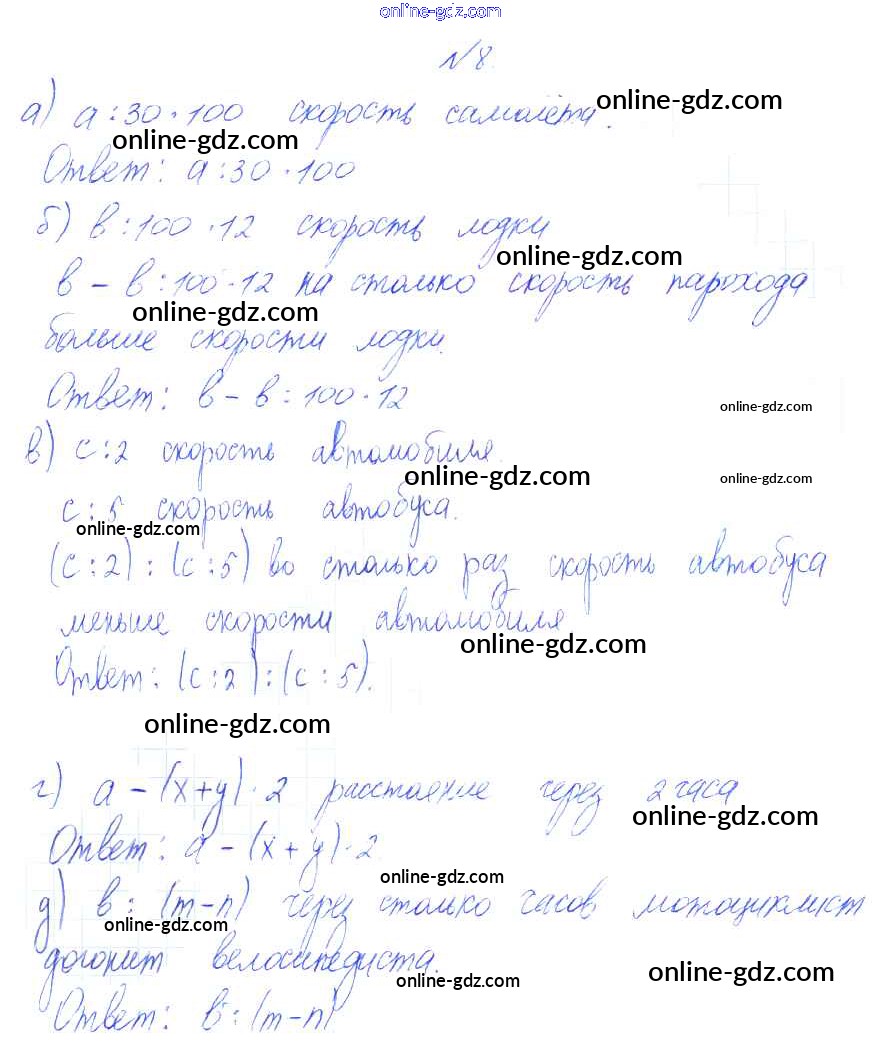 online-gdz.com
№8.
а) a:30·100 скорость самолёта.
online-gdz.com
online-gdz.com
Ответ: a:30·100
б) в:100·12 скорость лодки
online-gdz.com
в – в:100·12 на столько скорость парохода
online-gdz.com
больше скорости лодки.
Ответ: в – в:100·12
online-gdz.com
в) с:2 скорость автомобиля.
online-gdz.com
online-gdz.com
с:5 скорость автобуса.
online-gdz.com
(с:2):(с:5) во столько раз скорость автобуса
меньше скорости автомобиля
online-gdz.com
Ответ: (с:2):(с:5).
online-gdz.com
г) a – (x+y)·2 расстояние через 2 часа
online-gdz.com
Ответ: a – (x+y)·2.
online-gdz.com
д) в:(m–n) через столько часов мотоциклист
online-gdz.com
догонит велосипедиста.
online-gdz.com
online-gdz.com
Ответ: в:(m–n)